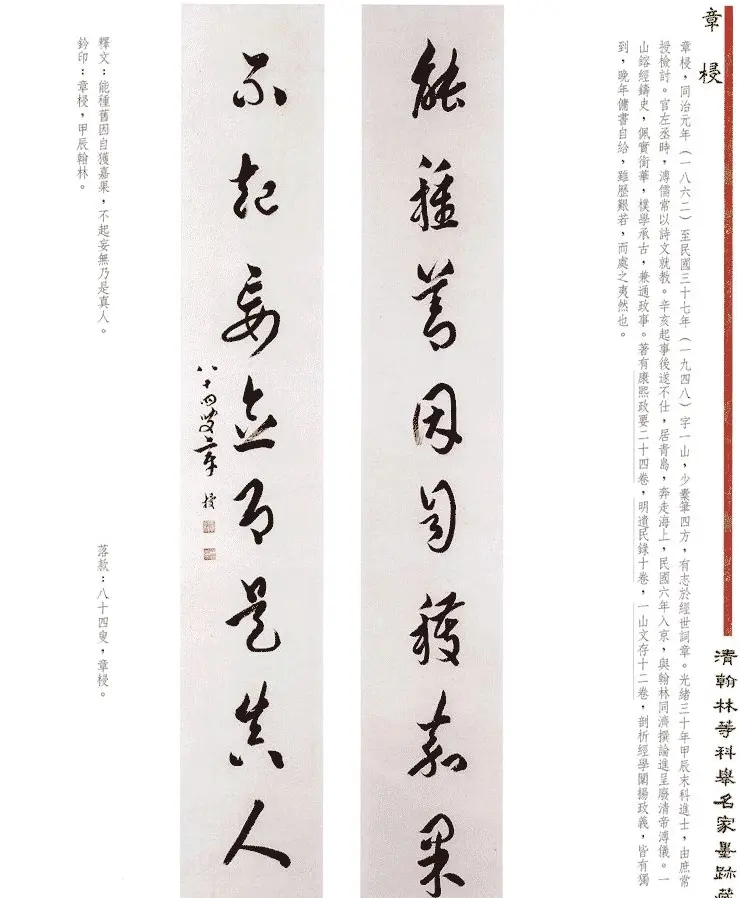 清翰林等科舉名家墨跡藏
章梫
章梫，同治元年（一八六二）至民國三十七年（一九四八）字一山，少橐筆四方，有志於經世詞章。光緒三十年甲辰末科進士，由庶常
授檢討。官左丞時，溥儒常以詩文就教。辛亥起事後遂不仕，居青島，奔走海上，民國六年入京，與翰林同濟撰論進呈廢清帝溥儀。一
山鎔經鑄史，佩實銜華，樸學承古，兼通政事。著有康熙政要二十四卷，明遺民錄十卷，一山文存十二卷，剖析經學闡揚政義，皆有獨
到，晚年傭書自給，雖歷艱若，而處之夷然也。
能種善因自獲嘉果
不起妄念即是真人
八十四叟章梫
釋文：能種舊因自獲嘉果，不起妄無乃是真人。
落款：八十四叟，章梫。
鈐印：章梫，甲辰翰林。